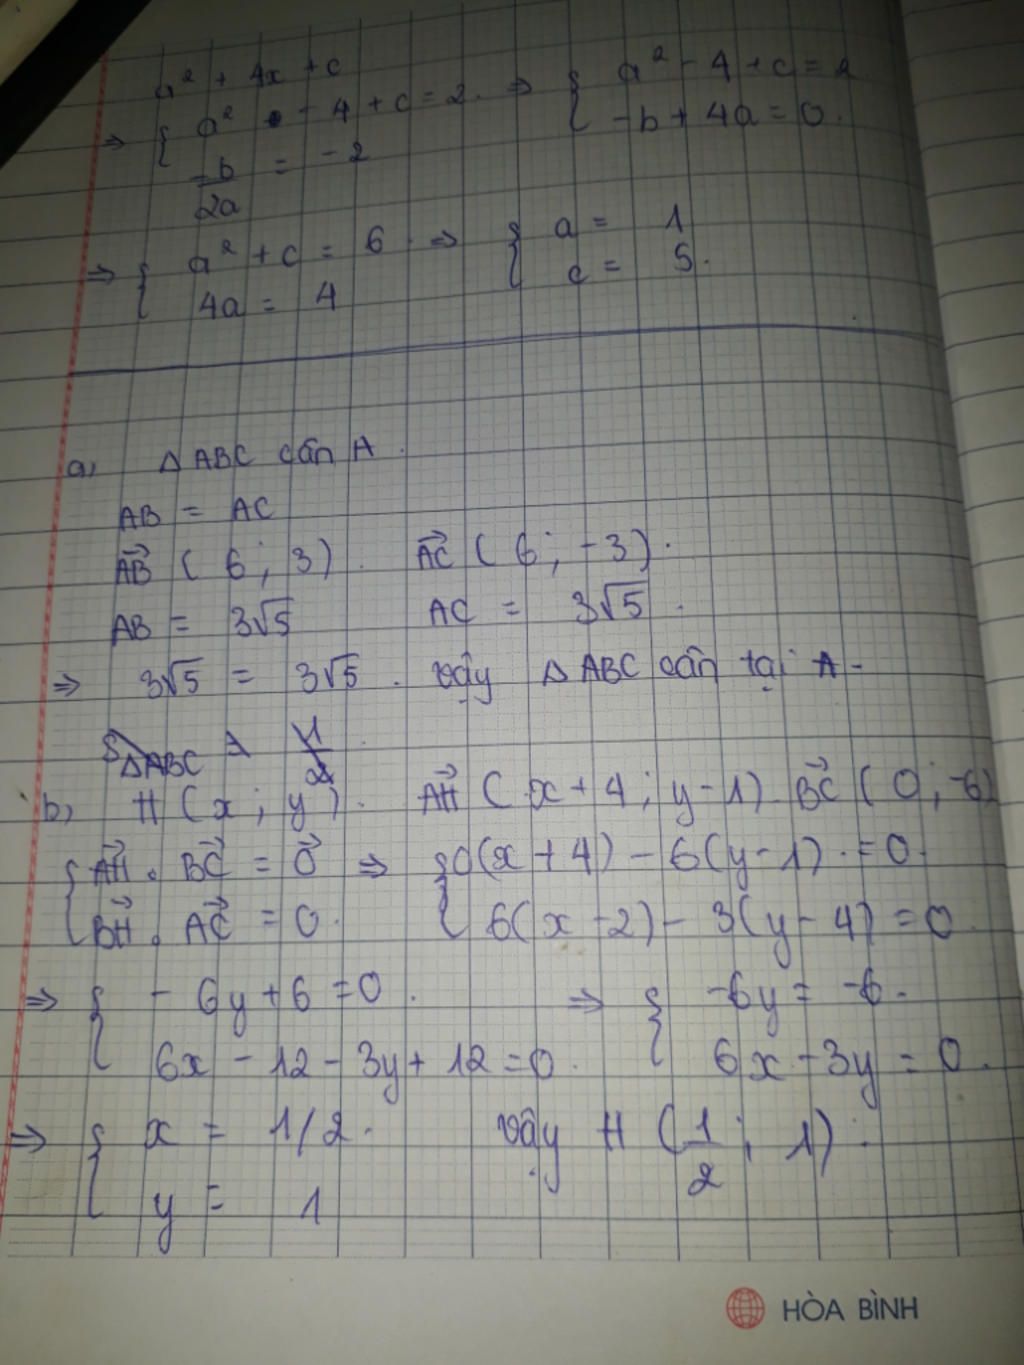 a² + 4x + c
⇒ { a² - 4 + c = 2 ⇒ { a² - 4 + c = 2
-b/2a = -2 -b + 4a = 0.
⇒ { a² + c = 6 ⇒ { a = 1
4a = 4 c = 5.
a) Δ ABC cân A.
AB = AC
AB→ (6; 3). AC→ (6; -3).
AB = 3√5 AC = 3√5.
⇒ 3√5 = 3√5. Vậy Δ ABC cân tại A-
SΔABC = 1/2
b) H (x; y). AH→ (x+4; y-1) BC→ (0; -6)
{ AH→ . BC→ = 0→ ⇒ { 0(x+4) - 6(y-1) = 0.
BH→ . AC→ = 0. 6(x-2) - 3(y-4) = 0
⇒ { - 6y + 6 = 0. ⇒ { -6y = -6.
6x - 12 - 3y + 12 = 0. 6x - 3y = 0.
⇒ { x = 1/2. Vậy H (1/2; 1).
y = 1
HÒA BÌNH